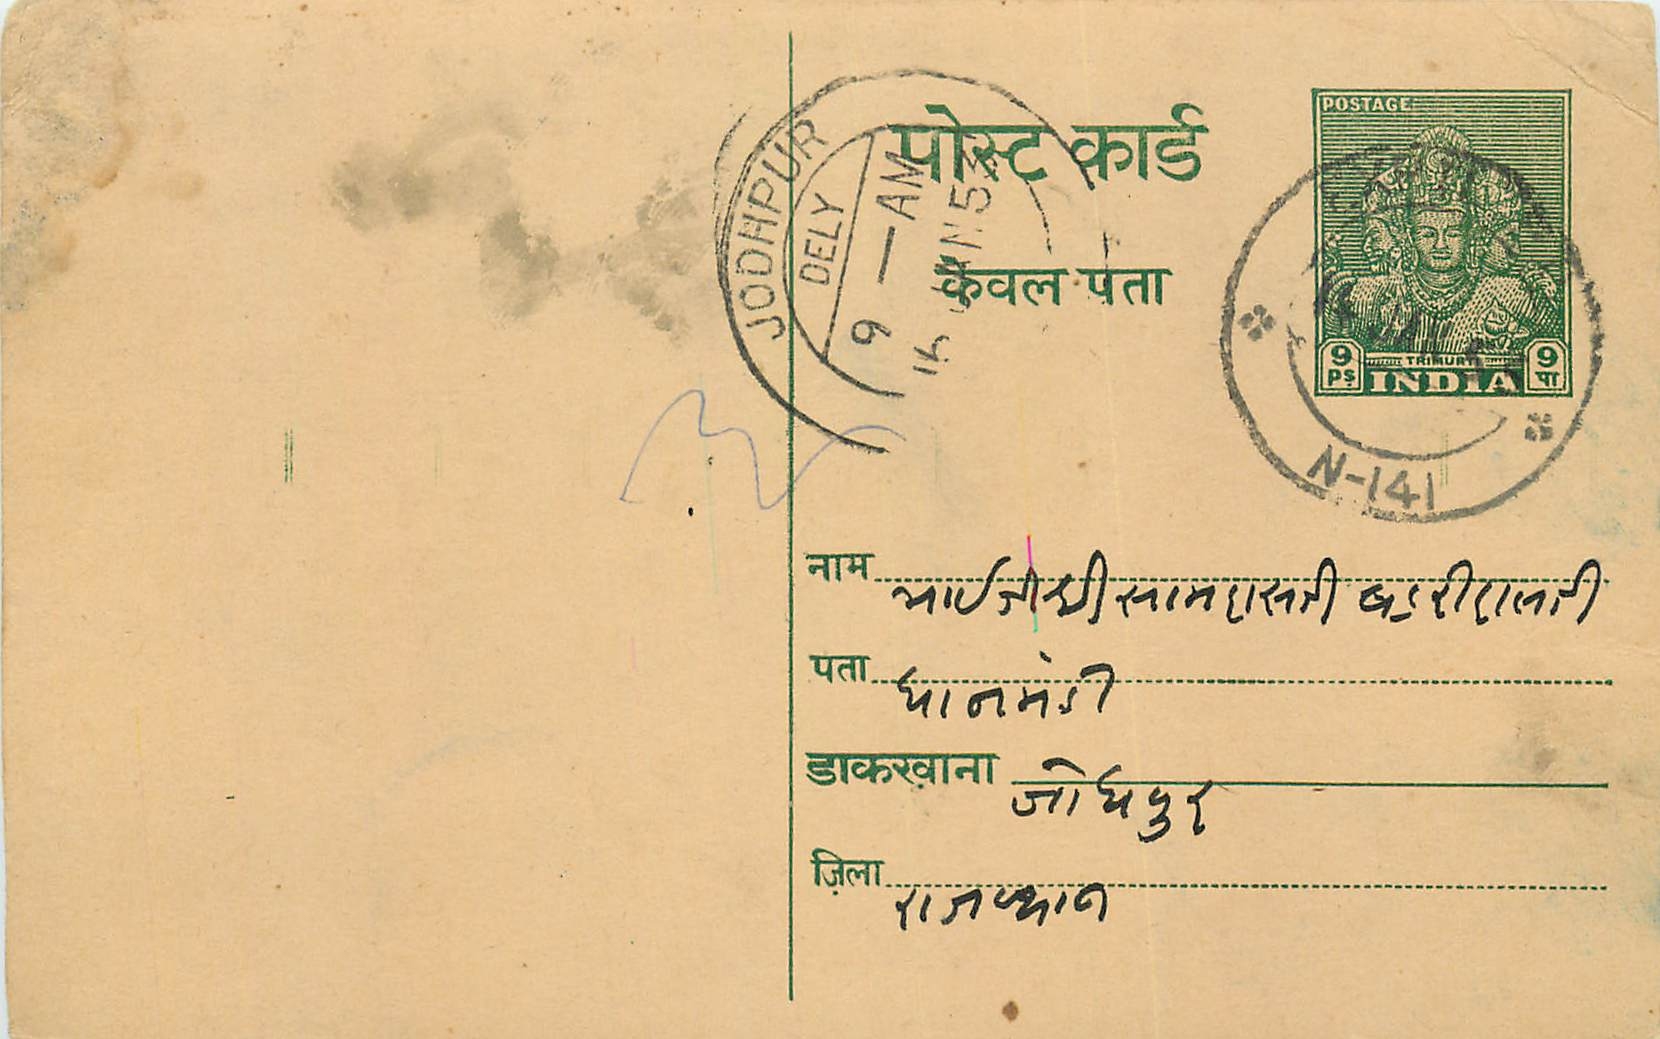 पोस्ट कार्ड
केवल पता
POSTAGE
TRIMURTI
9 PS
INDIA
9 पा
JODHPUR
DELY
9 — AM
JAN 5
JAN
N-141
नाम भाई जी श्री सामदासजी
पता धानमंडी
डाकख़ाना जोधपुर
ज़िला राजस्थान